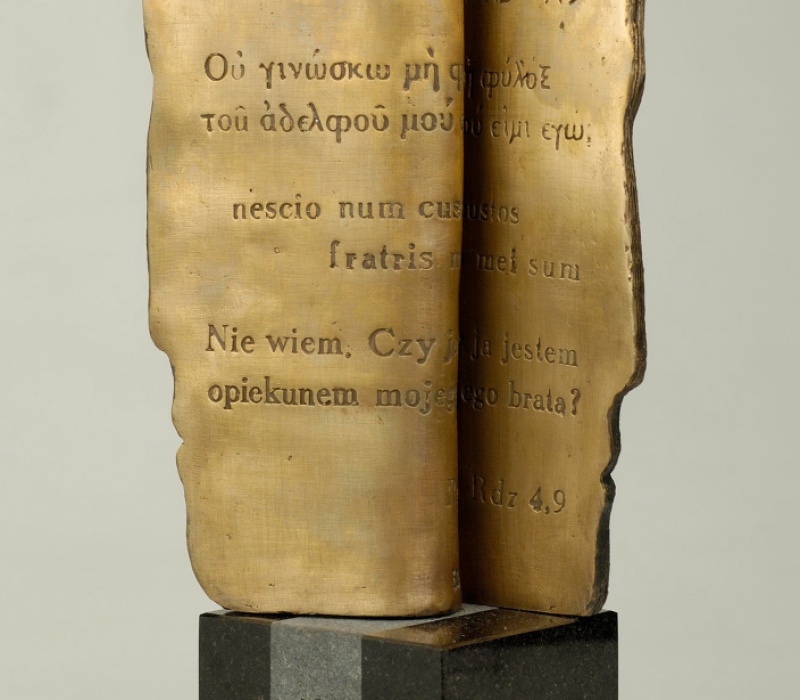 Οὐ γινώσκω μὴ φύλοξ
τοῦ ἀδελφοῦ μού εἰμι εγω;
nescio num custos
fratris mei sum
Nie wiem. Czy ja jestem
opiekunem mojego brata?
Rdz 4,9